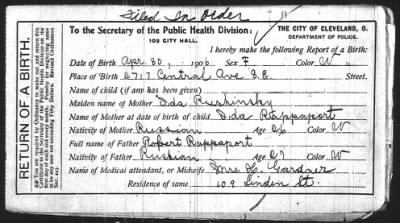 Filed In Order
To the Secretary of the Public Health Division:
102 CITY HALL.
THE CITY OF CLEVELAND, O.
DEPARTMENT OF POLICE.
I hereby make the following Report of a Birth:
Date of Birth Apr 30, 1906 Sex F Color W
Place of Birth 6717 Central Ave S.E. Street.
Name of child (if any has been given)
Maiden name of Mother Ida Rushinsky
Name of Mother at date of birth of child Ida Rappaport
Nativity of Mother Russian Age Color W
Full name of Father Robert Rappaport
Nativity of Father Russian Age Color W
Name of Medical attendant, or Midwife Mrs. H. Gardner
Residence of same 109 Linden St.
RETURN OF A BIRTH.
You are required by Ordinance to make out and return this